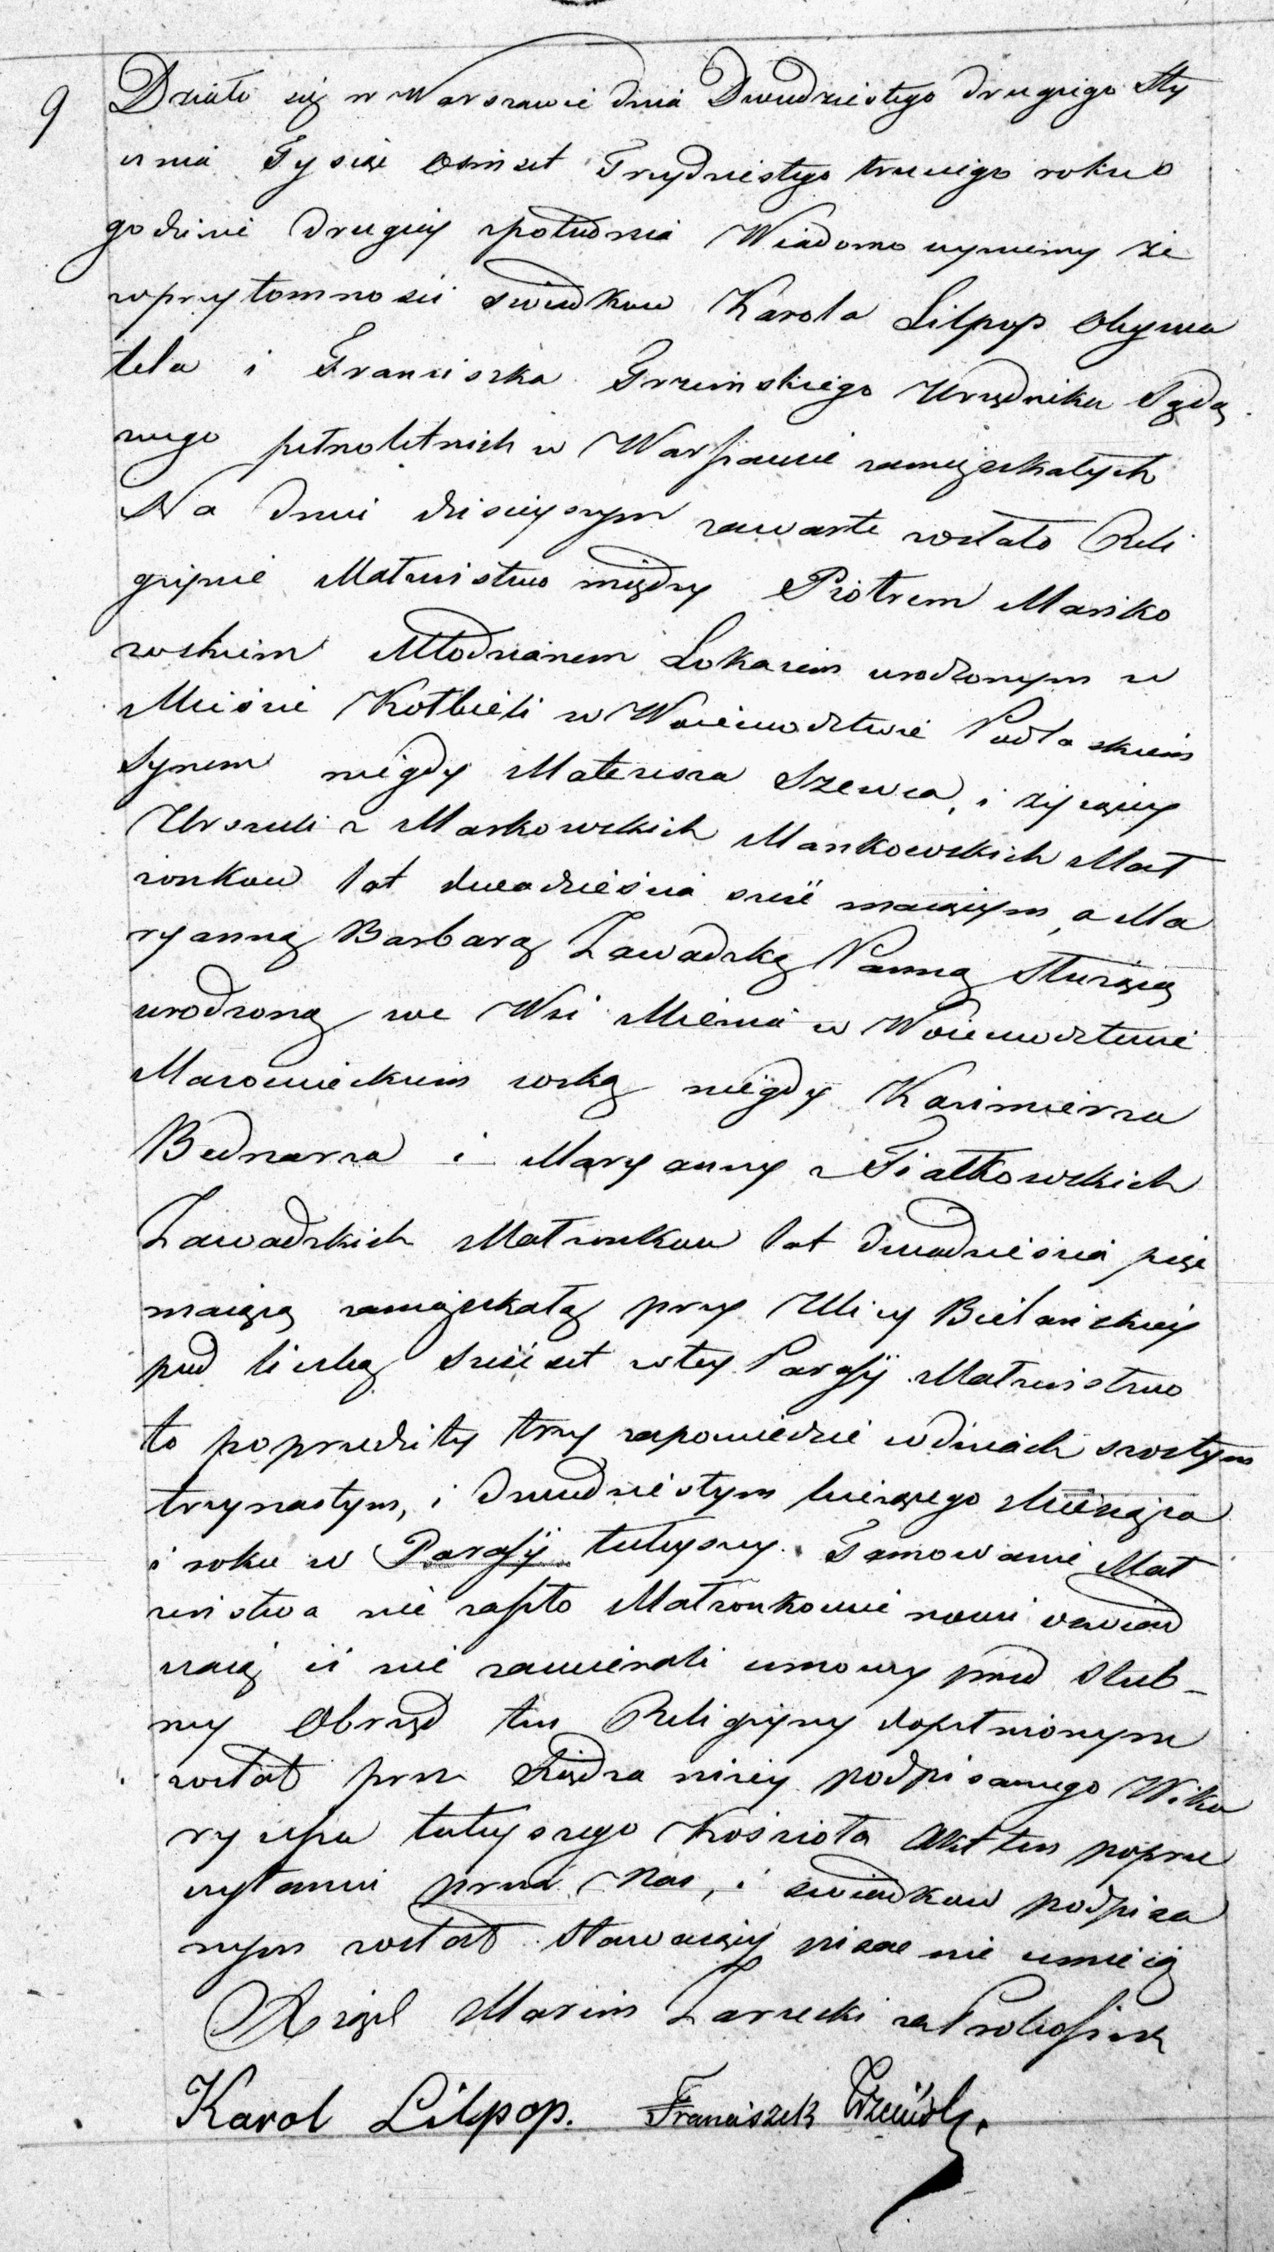 9 Działo się w Warszawie dnia Dwudziestego drugiego Sty
cznia Tysiąc Osmset Trzydziestego trzeciego roku o
godzinie drugiey zpołudnia Wiadomo czyniemy że
wprzytomnosci swiadkow Karola Lilpop Obywa
tela i Franciszka Urzędnika Sądo
wego pełnoletnich w Warszawie zamięszkałych
Na dniu dzisieyszym zawarte zostało Reli
giyne Małzenstwo między Piotrem Mańko
wskiem Młodzianem Lokaiem urodzonym w
Miescie Kołbieli w Woiewodztwie Podlaskiem
Synem niegdy Mateusza Szewca, i żyiącey
Urszuli z Markowskich Mankowskich Małz
zonkow lat dwadzieścia sześć maiącym, a Ma
ryanną Barbarą Zawadzką Panną Służącą
urodzoną we Wsi Mienia w Woiewodztwie
Mazowieckiem corką niegdy Kazimierza
Bednarza i Maryanny z Fiałkowskich
Zawadzkich Małzonkow lat dwadziescia pięć
maiącą zamięszkałą przy Ulicy Bielańskiey
pod liczbą sześćset w tey Parafii Małzenstwo
to poprzedziły trzy zapowiedzie w dniach szostym
trzynastym, i dwudziestym bieżącego Miesiąca
i roku w Parafij tuteyszey. Tamowanie Mał
zenstwa nie zaszło Małzonkowie nowi oswiad
czaią iż nie zawierali umowy przed slub-
ney Obrząd ten Religiyny dopełnionym
został przez Xiędza niżey podpisanego Wika
ryusza tuteyszego Kościoła Akt ten po prze
czytaniu przez Nas, i swiadkow podpisa
nym został Stawaiący pisac nie umieią
Xiądz Marcin Zarzecki za Proboszcza
Karol Lilpop. Franciszek